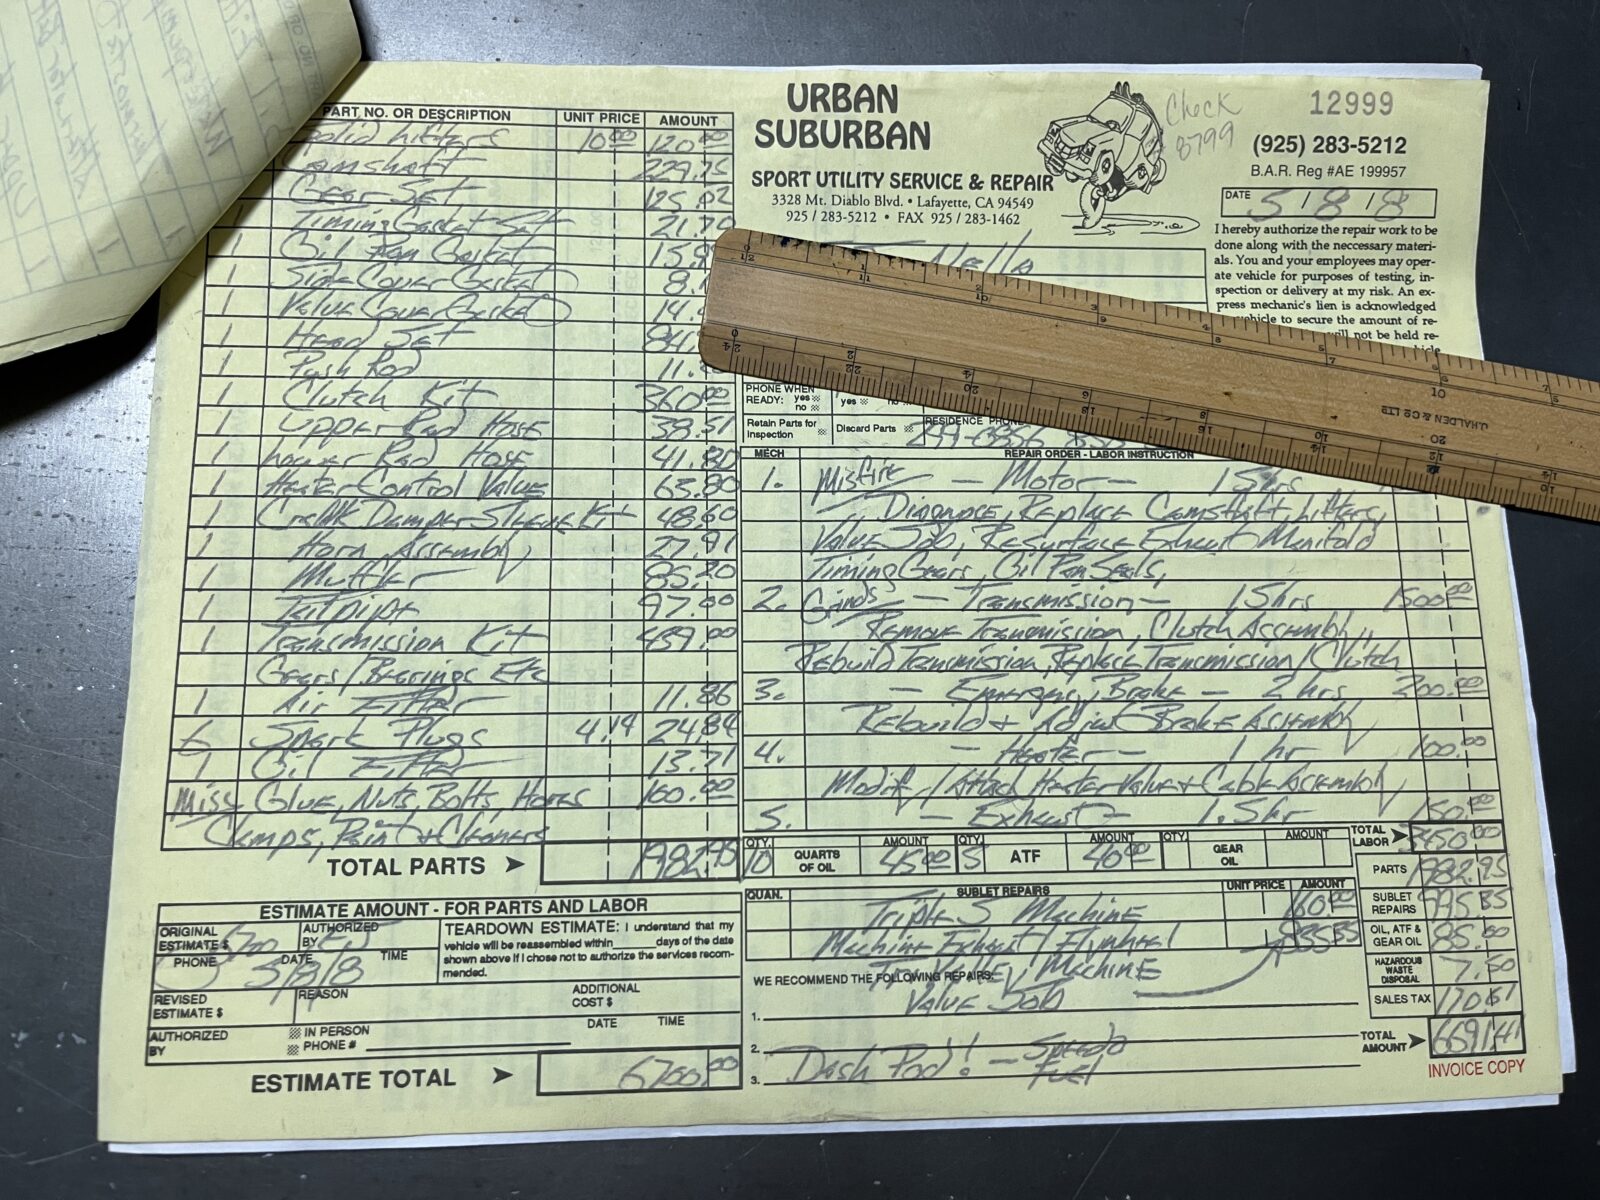 PART NO. OR DESCRIPTION UNIT PRICE AMOUNT
Solid Lifters 10.00 120.00
Camshaft 229.75
Gear Set 125.02
Timing Gasket Set 21.70
1 Oil Pan Gasket 15.9
1 Side Cover Gasket 8.
1 Valve Cover Gasket 14.
1 Head Set 84.
1 Push Rod 11.
1 Clutch Kit 360.00
1 Upper Rad Hose 38.51
1 Lower Rad Hose 41.80
1 Heater Control Valve 63.80
1 Crank Damper Sleeve Kit 48.60
1 Horn Assembly 27.91
1 Muffler 85.20
1 Tailpipe 97.00
1 Transmission Kit 459.00
Gears/Bearings Etc
1 Air Filter 11.86
6 Spark Plugs 4.14 24.84
1 Oil Filter 13.71
Misc Glue, Nuts, Bolts, Hoses 100.00
Clamps, Paint + Cleaners
TOTAL PARTS 1982.95
ESTIMATE AMOUNT - FOR PARTS AND LABOR
ORIGINAL ESTIMATE $ 6700 AUTHORIZED BY EJ
PHONE DATE TIME
5/8/8
TEARDOWN ESTIMATE: I understand that my
vehicle will be reassembled within ______ days of the date
shown above if I chose not to authorize the services recom-
mended.
REVISED ESTIMATE $ REASON ADDITIONAL COST $
AUTHORIZED BY IN PERSON DATE TIME
PHONE #
ESTIMATE TOTAL 6700.00
URBAN
SUBURBAN
SPORT UTILITY SERVICE & REPAIR
3328 Mt. Diablo Blvd. • Lafayette, CA 94549
925 / 283-5212 • FAX 925 / 283-1462
Check
8799
12999
(925) 283-5212
B.A.R. Reg #AE 199957
DATE 5/8/8
I hereby authorize the repair work to be
done along with the neccessary materi-
als. You and your employees may oper-
ate vehicle for purposes of testing, in-
spection or delivery at my risk. An ex-
press mechanic's lien is acknowledged
vehicle to secure the amount of re-
will not be held re-
J.HALDEN & CO LTD
PHONE WHEN
READY: yes yes
no no
Retain Parts for Inspection Discard Parts RESIDENCE PHONE
MECH REPAIR ORDER - LABOR INSTRUCTION
1. Misfire - Motor - 15hrs
Diagnose, Replace Camshaft, Lifters,
Valve Job, Resurface Exhaust Manifold
Timing Gears, Oil Pan Seals,
2. Grinds - Transmission - 15hrs 1500.00
Remove Transmission, Clutch Assembly,
Rebuild Transmission, Replace Transmission/Clutch
3. - Emergency Brake - 2 hrs 200.00
Rebuild + Adjust Brake Assembly
4. - Heater - 1 hr 100.00
Modify/Attach Heater Valve + Cable Assembly
5. - Exhaust - 1.5hr 150.00
TOTAL LABOR 3450.00
QTY. AMOUNT QTY. AMOUNT QTY. AMOUNT
10 QUARTS OF OIL 45.00 5 ATF 40.00 GEAR OIL
PARTS 1982.95
QUAN. SUBLET REPAIRS UNIT PRICE AMOUNT
Triple S Machine 160.00
Machine Exhaust/Flywheel 835.35
SUBLET REPAIRS 995.35
OIL, ATF & GEAR OIL 85.00
WE RECOMMEND THE FOLLOWING REPAIRS:
Machine
Valve Job
HAZARDOUS WASTE DISPOSAL 7.50
SALES TAX 170.61
1.
2. Speedo
3. Dash Pod! - Fuel
TOTAL AMOUNT 6691.41
INVOICE COPY